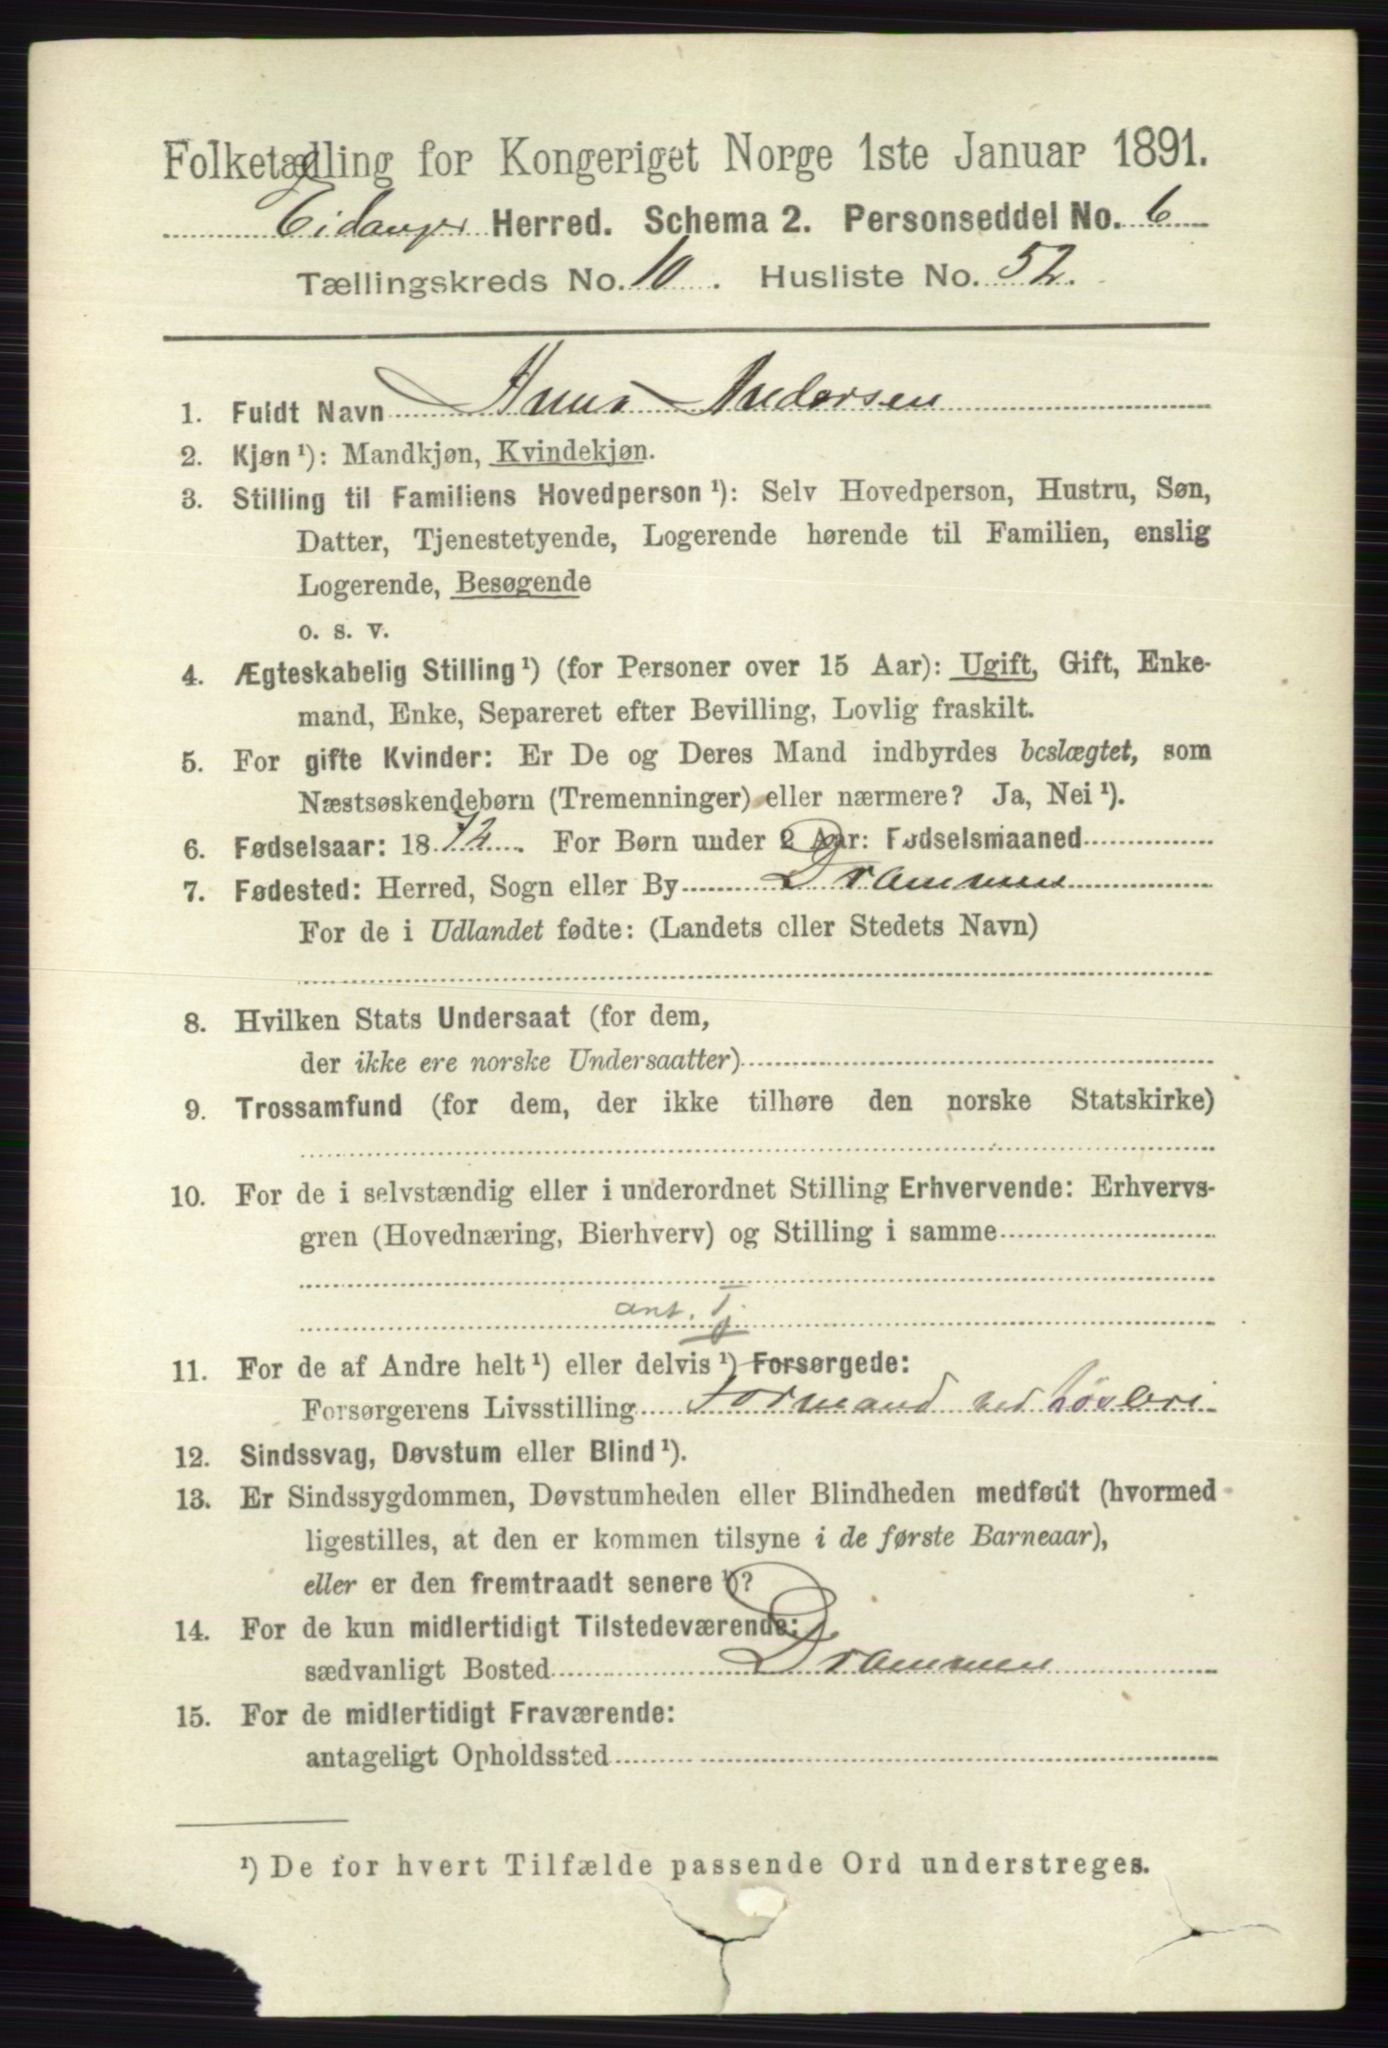 Folketælling for Kongeriget Norge 1ste Januar 1891.
Eidanger Herred. Schema 2. Personseddel No. 6
Tællingskreds No. 10. Husliste No. 52.
1. Fuldt Navn Anna Andersen
2. Kjøn¹): Mandkjøn, Kvindekjøn.
3. Stilling til Familiens Hovedperson¹): Selv Hovedperson, Hustru, Søn,
Datter, Tjenestetyende, Logerende hørende til Familien, enslig
Logerende, Besøgende
o. s. v.
4. Ægteskabelig Stilling¹) (for Personer over 15 Aar): Ugift, Gift, Enke-
mand, Enke, Separeret efter Bevilling, Lovlig fraskilt.
5. For gifte Kvinder: Er De og Deres Mand indbyrdes beslægtet, som
Næstsøskendebørn (Tremenninger) eller nærmere? Ja, Nei¹).
6. Fødselsaar: 1872. For Børn under 2 Aar: Fødselsmaaned
7. Fødested: Herred, Sogn eller By Drammen
For de i Udlandet fødte: (Landets eller Stedets Navn)
8. Hvilken Stats Undersaat (for dem,
der ikke ere norske Undersaatter)
9. Trossamfund (for dem, der ikke tilhøre den norske Statskirke)
10. For de i selvstændig eller i underordnet Stilling Erhvervende: Erhvervs-
gren (Hovednæring, Bierhverv) og Stilling i samme
ant. Tj
11. For de af Andre helt¹) eller delvis¹) Forsørgede:
Forsørgerens Livsstilling Formand ved
12. Sindssvag, Døvstum eller Blind¹).
13. Er Sindssygdommen, Døvstumheden eller Blindheden medfødt (hvormed
ligestilles, at den er kommen tilsyne i de første Barneaar),
eller er den fremtraadt senere¹)?
14. For de kun midlertidigt Tilstedeværende:
sædvanligt Bosted Drammen
15. For de midlertidigt Fraværende:
antageligt Opholdssted
¹) De for hvert Tilfælde passende Ord understreges.